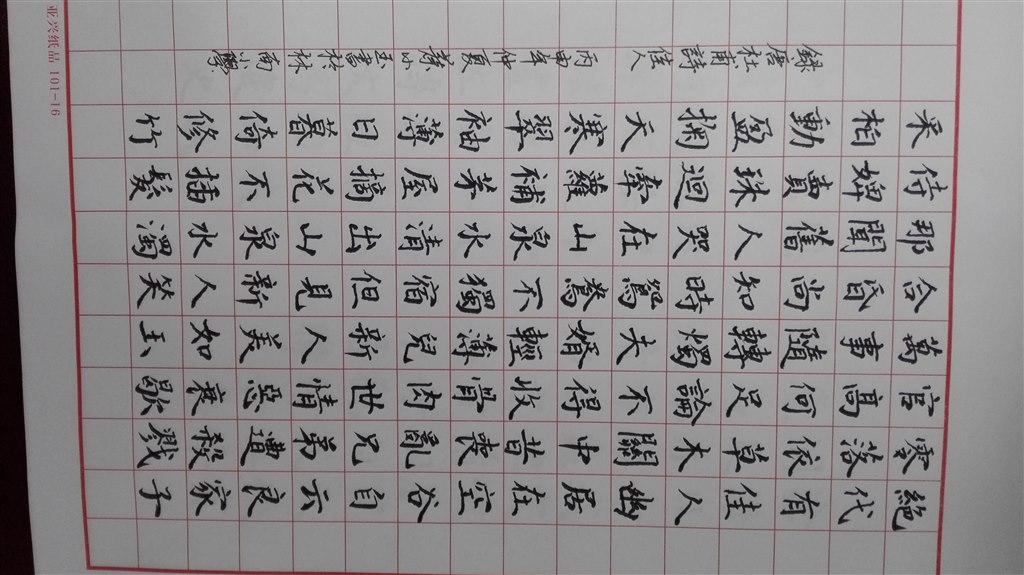 絕代有佳人幽居在空谷自云良家子
零落依草木關中昔喪亂兄弟遭殺戮
官高何足論不得收骨肉世情惡衰歇
萬事隨轉燭夫婿輕薄兒新人美如玉
合昏尚知時鴛鴦不獨宿但見新人笑
那聞舊人哭在山泉水清出山泉水濁
侍婢賣珠迴牽蘿補茅屋摘花不插髮
采柏動盈掬天寒翠袖薄日暮倚修竹
錄唐杜甫詩佳人 丙申年仲夏蘇小玉書於林南小學
亚兴纸品 101-16